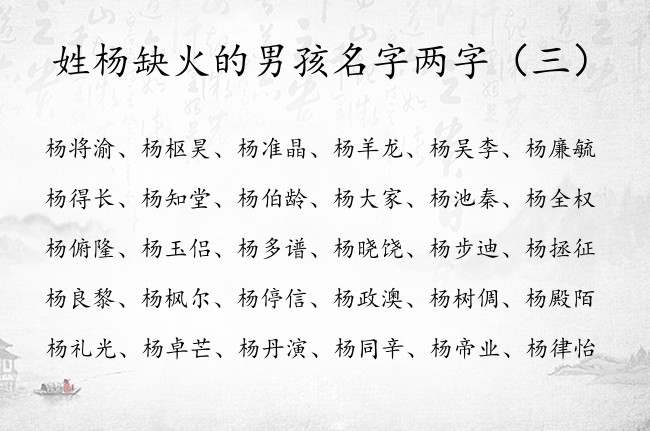 姓杨缺火的男孩名字两字（三）
杨将渝、杨枢昊、杨准晶、杨羊龙、杨吴李、杨廉毓
杨得长、杨知堂、杨伯龄、杨大家、杨池秦、杨全权
杨俯隆、杨玉侣、杨多谱、杨晓饶、杨步迪、杨拯征
杨良黎、杨枫尔、杨停信、杨政澳、杨树倜、杨殿陌
杨礼光、杨卓芒、杨丹演、杨同辛、杨帝业、杨律怡